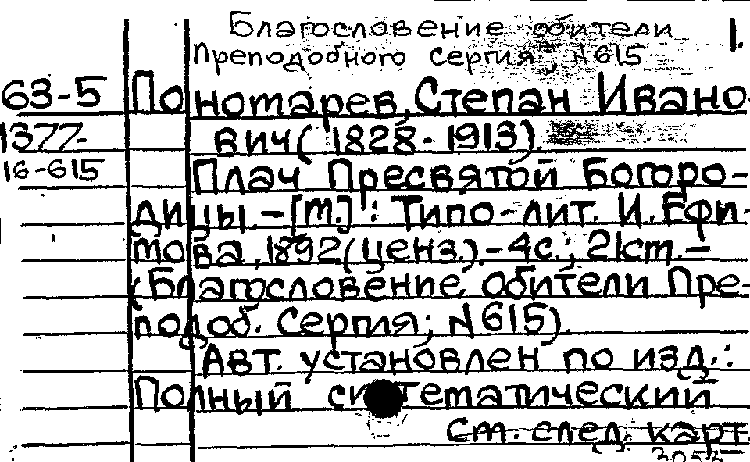 Благословение обители 1.
Преподобного Сергия, N 615
63-5 Пономарев, Степан Ивано-
1377- вич (1828-1913).
16-615 Плач Пресвятой Богоро-
дицы. - [М.]: Типо-лит. И. Ефи-
мова, 1892 (ценз.). - 4с.; 21см. -
(Благословение обители Пре-
подоб. Сергия; N 615).
Авт. установлен по изд.:
Полный систематический
См. след. карт